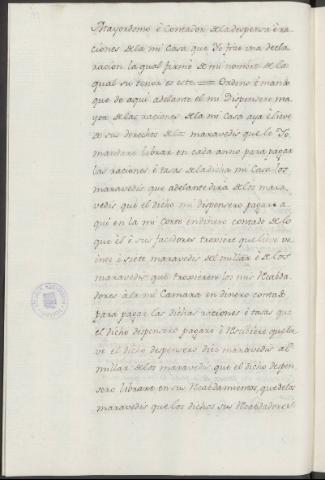 Mayordomo è Contador de la despensa è ra-
ciones de la mi Casa que Yo fice una decla-
racion la qual firmé de mi nombre de la
qual su tenor es este = Ordeno è mando
que de aqui adelante el mi Dispensero ma
yor de las raciones de la mi Casa aya è lieve
de sus derechos de los maravedis que lo Yo
mandare librar en cada anno para pagar
las raciones è tasas de la dicha mi Casa los
maravedis que adelante dirá de los mara-
vedis que el dicho mi dispensero pagare a
qui en la mi Corte en dinero contado de lo
que èl è sus facedores troxiere que lieve ve
inte è siete maravedis del millar è de los
maravedis que troxieren los mis Recabda-
dores à la mi Camara en dinero contado
para pagar las dichas raciones è tasas que
el dicho despensero pagare è Rescibiere que lie
ve el dicho despensero diez maravedis al
millar de los maravedis que el dicho despen
sero librare en sus Recabdamientos, que de los
maravedis que los dichos sus Recabdadores